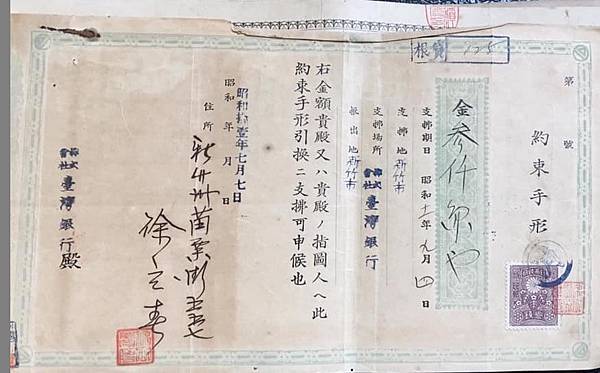 第 號
約束手形
金参仟円也
支拂期日 昭和十一年九月四日
支拂地 新竹市
支拂場所 株式會社臺灣銀行
振出地 新竹市
右金額貴殿又ハ貴殿ノ指圖人ヘ此
約束手形引換ニ支拂可申候也
昭和拾壹年七月七日
昭和 年 月 日
住所 新竹州苗栗街
徐 春
株式會社臺灣銀行殿